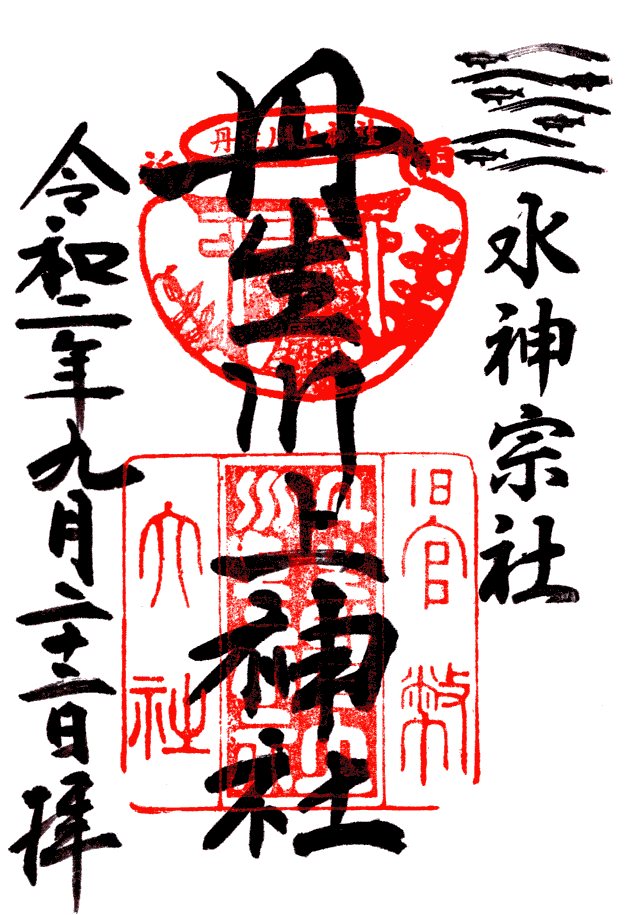 水神宗社
丹生川上神社
令和二年九月二十二日拝
丹生川上神社
旧官幣
大社